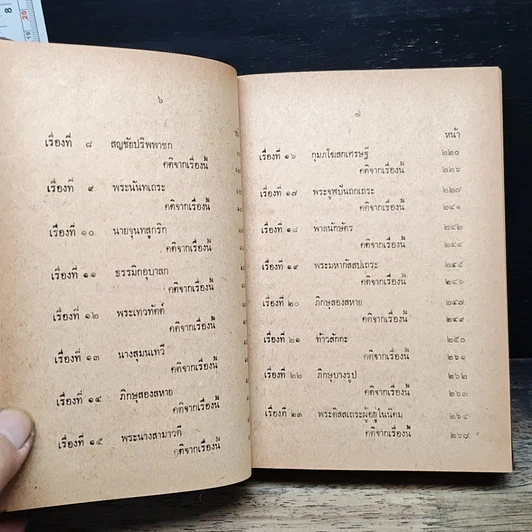 ๖
เรื่องที่ ๘ สญชัยปริพพาชก
คติจากเรื่องนี้
เรื่องที่ ๙ พระนันทเถระ
คติจากเรื่องนี้
เรื่องที่ ๑๐ นายจุนทสูกริก
คติจากเรื่องนี้
เรื่องที่ ๑๑ ธรรมิกอุบาสก
คติจากเรื่องนี้
เรื่องที่ ๑๒ พระเทวทัตต์
คติจากเรื่องนี้
เรื่องที่ ๑๓ นางสุมนเทวี
คติจากเรื่องนี้
เรื่องที่ ๑๔ ภิกษุสองสหาย
คติจากเรื่องนี้
เรื่องที่ ๑๕ พระนางสามาวดี
คติจากเรื่องนี้
๗
หน้า
เรื่องที่ ๑๖ กุมภโฆสกเศรษฐี ๒๒๐
คติจากเรื่องนี้ ๒๒๖
เรื่องที่ ๑๗ พระจูฬปันถกเถระ ๒๒๗
คติจากเรื่องนี้ ๒๔๑
เรื่องที่ ๑๘ พาลนักษัตร ๒๔๒
คติจากเรื่องนี้ ๒๔๔
เรื่องที่ ๑๙ พระมหากัสสปเถระ ๒๔๕
คติจากเรื่องนี้ ๒๔๖
เรื่องที่ ๒๐ ภิกษุสองสหาย ๒๔๗
คติจากเรื่องนี้ ๒๔๙
เรื่องที่ ๒๑ ท้าวสักกะ ๒๕๐
คติจากเรื่องนี้ ๒๖๑
เรื่องที่ ๒๒ ภิกษุบางรูป ๒๖๒
คติจากเรื่องนี้ ๒๖๓
เรื่องที่ ๒๓ พระติสสเถระผู้อยู่ในนิคม ๒๖๔
คติจากเรื่องนี้ ๒๖๗